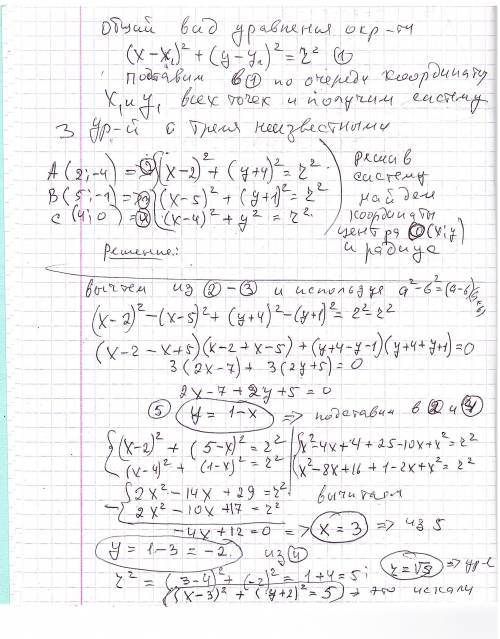 Общий вид уравнения окр-ти
(x-x₁)² + (y-y₁)² = r² ①
подставим в ① по очереди координату
x₁ и y₁ всех точек и получим систему
3 ур-й с тремя неизвестными
A(2;-4) => ② (x-2)² + (y+4)² = r²
B(5;-1) => ③ (x-5)² + (y+1)² = r²
C(4;0) => ④ (x-4)² + y² = r²
решив
систему
найдем
координаты
центра O(x;y)
и радиус
Решение:
вычтем из ② - ③ и используя a²-b²=(a-b)(a+b)
(x-2)² - (x-5)² + (y+4)² - (y+1)² = r²-r²
(x-2-x+5)(x-2+x-5) + (y+4-y-1)(y+4+y+1)=0
3(2x-7) + 3(2y+5) = 0
2x-7+2y+5=0
⑤ y = 1-x => подставим в ② и ④
(x-2)² + (5-x)² = r² | x²-4x+4+25-10x+x² = r²
(x-4)² + (1-x)² = r² | x²-8x+16+1-2x+x² = r²
2x²-14x+29=r² вычитаем
2x²-10x+17=r²
-4x+12=0 => x=3 => из 5
y=1-3=-2. из ④
r² = (3-4)² + (-2)² = 1+4=5; r=√5 => ур-е
(x-3)² + (y+2)² = 5 это искали